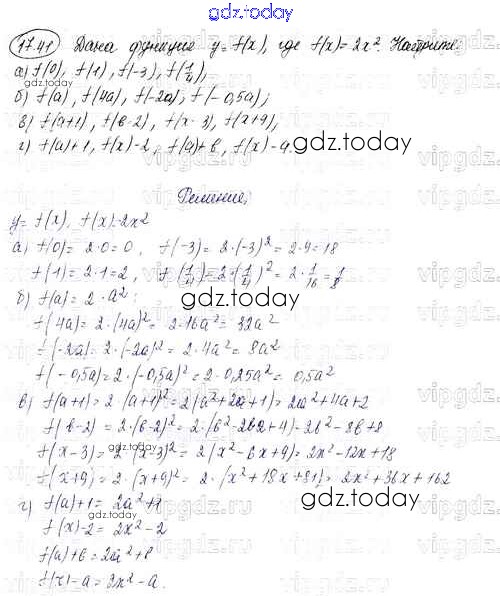 gdz.today
17.41 Дана функция y = f(x), где f(x) = 2x² Найдите:
а) f(0), f(1), f(-3), f(1/4),
gdz.today
б) f(a), f(4a), f(-2a), f(-0,5a);
в) f(a+1), f(b-2), f(x-3), f(x+9),
г) f(a)+1, f(x)-2, f(a)+b, f(x)-a.
gdz.today
Решение;
y = f(x), f(x)=2x²
а) f(0) = 2·0 = 0, f(-3) = 2·(-3)² = 2·9 = 18
f(1) = 2·1 = 2, f(1/4) = 2·(1/4)² = 2·1/16 = 1/8
б) f(a) = 2·a²;
gdz.today
f(4a) = 2·(4a)² = 2·16a² = 32a²
f(-2a) = 2·(-2a)² = 2·4a² = 8a²
f(-0,5a) = 2·(-0,5a)² = 2·0,25a² = 0,5a²
в) f(a+1) = 2·(a+1)² = 2(a²+2a+1) = 2a²+4a+2
f(b-2) = 2·(b-2)² = 2·(b²-2b2+4) = 2b²-8b+8
f(x-3) = 2·(x-3)² = 2(x²-6x+9) = 2x²-12x+18
gdz.today
f(x+9) = 2·(x+9)² = 2·(x²+18x+81) = 2x²+36x+162
г) f(a)+1 = 2a²+1
gdz.today
f(x)-2 = 2x²-2
f(a)+b = 2a²+b
gdz.today
f(x)-a = 2x²-a.
vipgdz